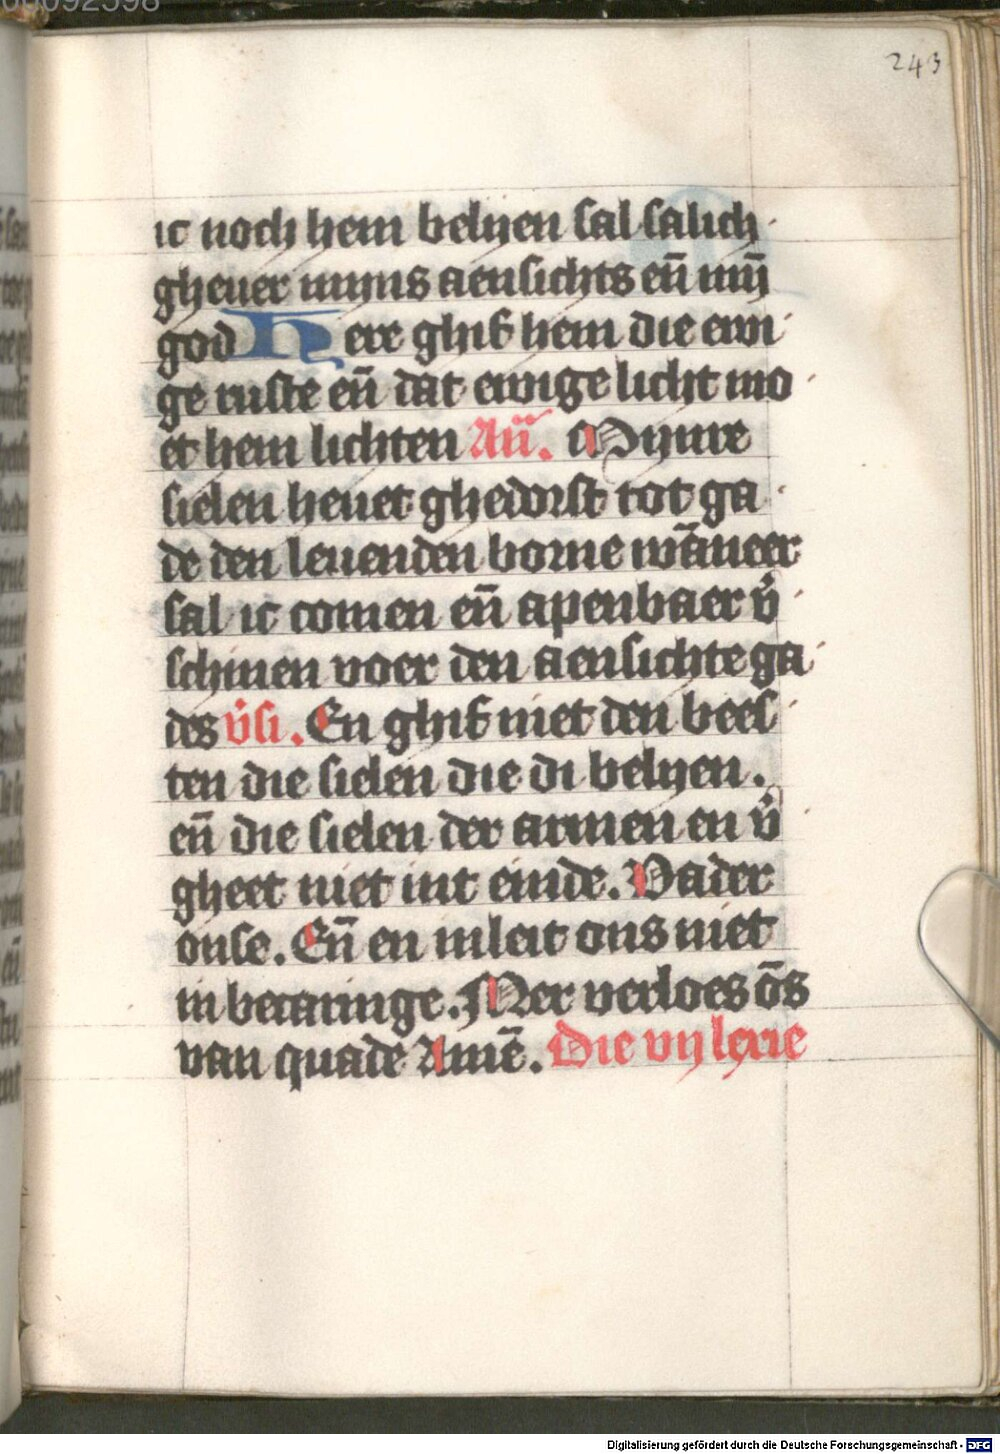 243
ic noch hem belyen sal salich
gheuer myns aensichts eñ mӱ
god Here ghif hem die ewi
ge ruste eñ dat ewige licht mo
et hem lichten Añ. Mynre
sielen heuet ghedorst tot ga
de den leuenden borne wãneer
sal ic comen eñ apenbaer v̉
schinen voer den aensichte ga
des v̉si. En ghif niet den bees
ten die sielen die di belyen.
eñ die sielen der armen en v̉
gheet niet int einde. Vader
onse. Eñ en inleit ons niet
in becaringe. Mer verloes õs
van quade Amẽ. Die vij lexie
Digitalisierung gefördert durch die Deutsche Forschungsgemeinschaft - DFG